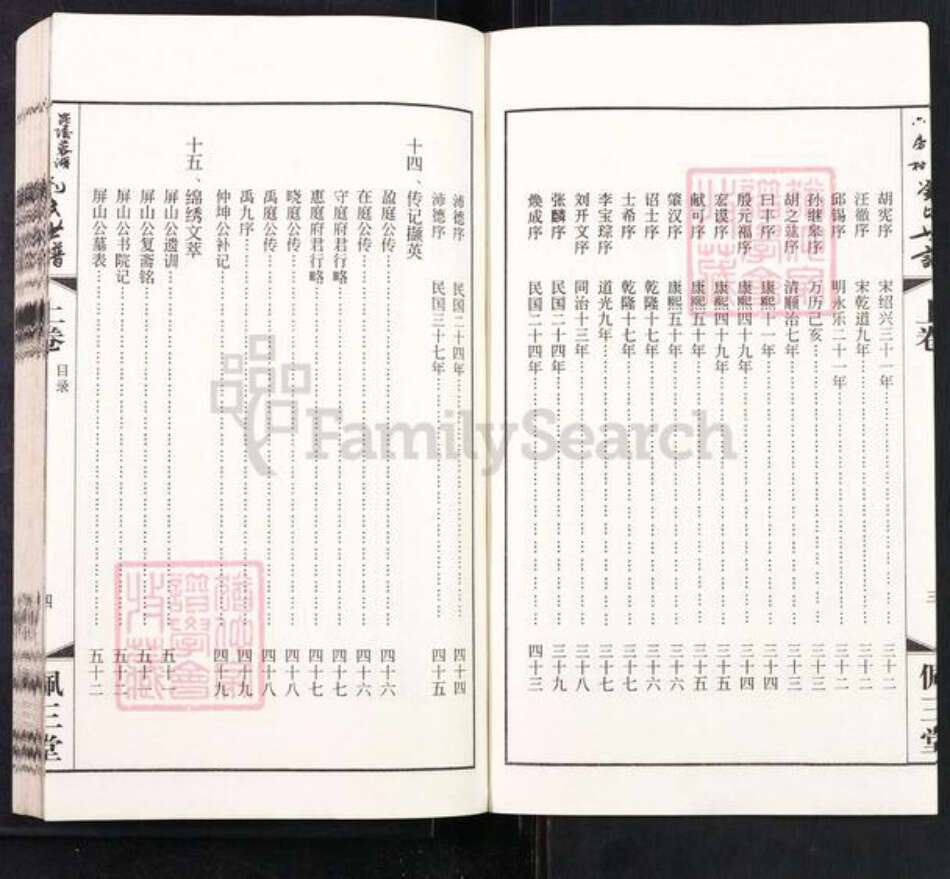 上卷
三
胡宪序 宋绍兴三十一年 三十二
汪徹序 宋乾道九年 三十二
邱锡序 明永乐二十一年 三十二
孙继皋序 万历己亥 三十三
胡之竑序 清顺治七年 三十三
曰丰序 康熙十一年 三十四
殷元福序 康熙四十九年 三十四
宏谟序 康熙四十九年 三十五
献可序 康熙五十年 三十五
肇汉序 康熙五十年 三十六
诏士序 乾隆十七年 三十六
士希序 乾隆十七年 三十七
李宝琮序 道光九年 三十七
刘开文序 同治十三年 三十八
张麟序 民国二十四年 三十九
焕成序 民国二十四年 四十三
沛德序 民国二十四年 四十四
沛德序 民国三十七年 四十五
十四、传记撷英
盈庭公传 四十六
在庭公传 四十六
守庭府君行略 四十七
惠庭府君行略 四十七
晓庭公传 四十八
禹庭公传 四十八
禹九序 四十九
仲坤公补记 四十九
十五、绵绣文萃
屏山公遗训 五十
屏山公复斋铭 五十一
屏山公书院记 五十二
屏山公墓表 五十二
上卷
目录
四
佩三堂
FamilySearch